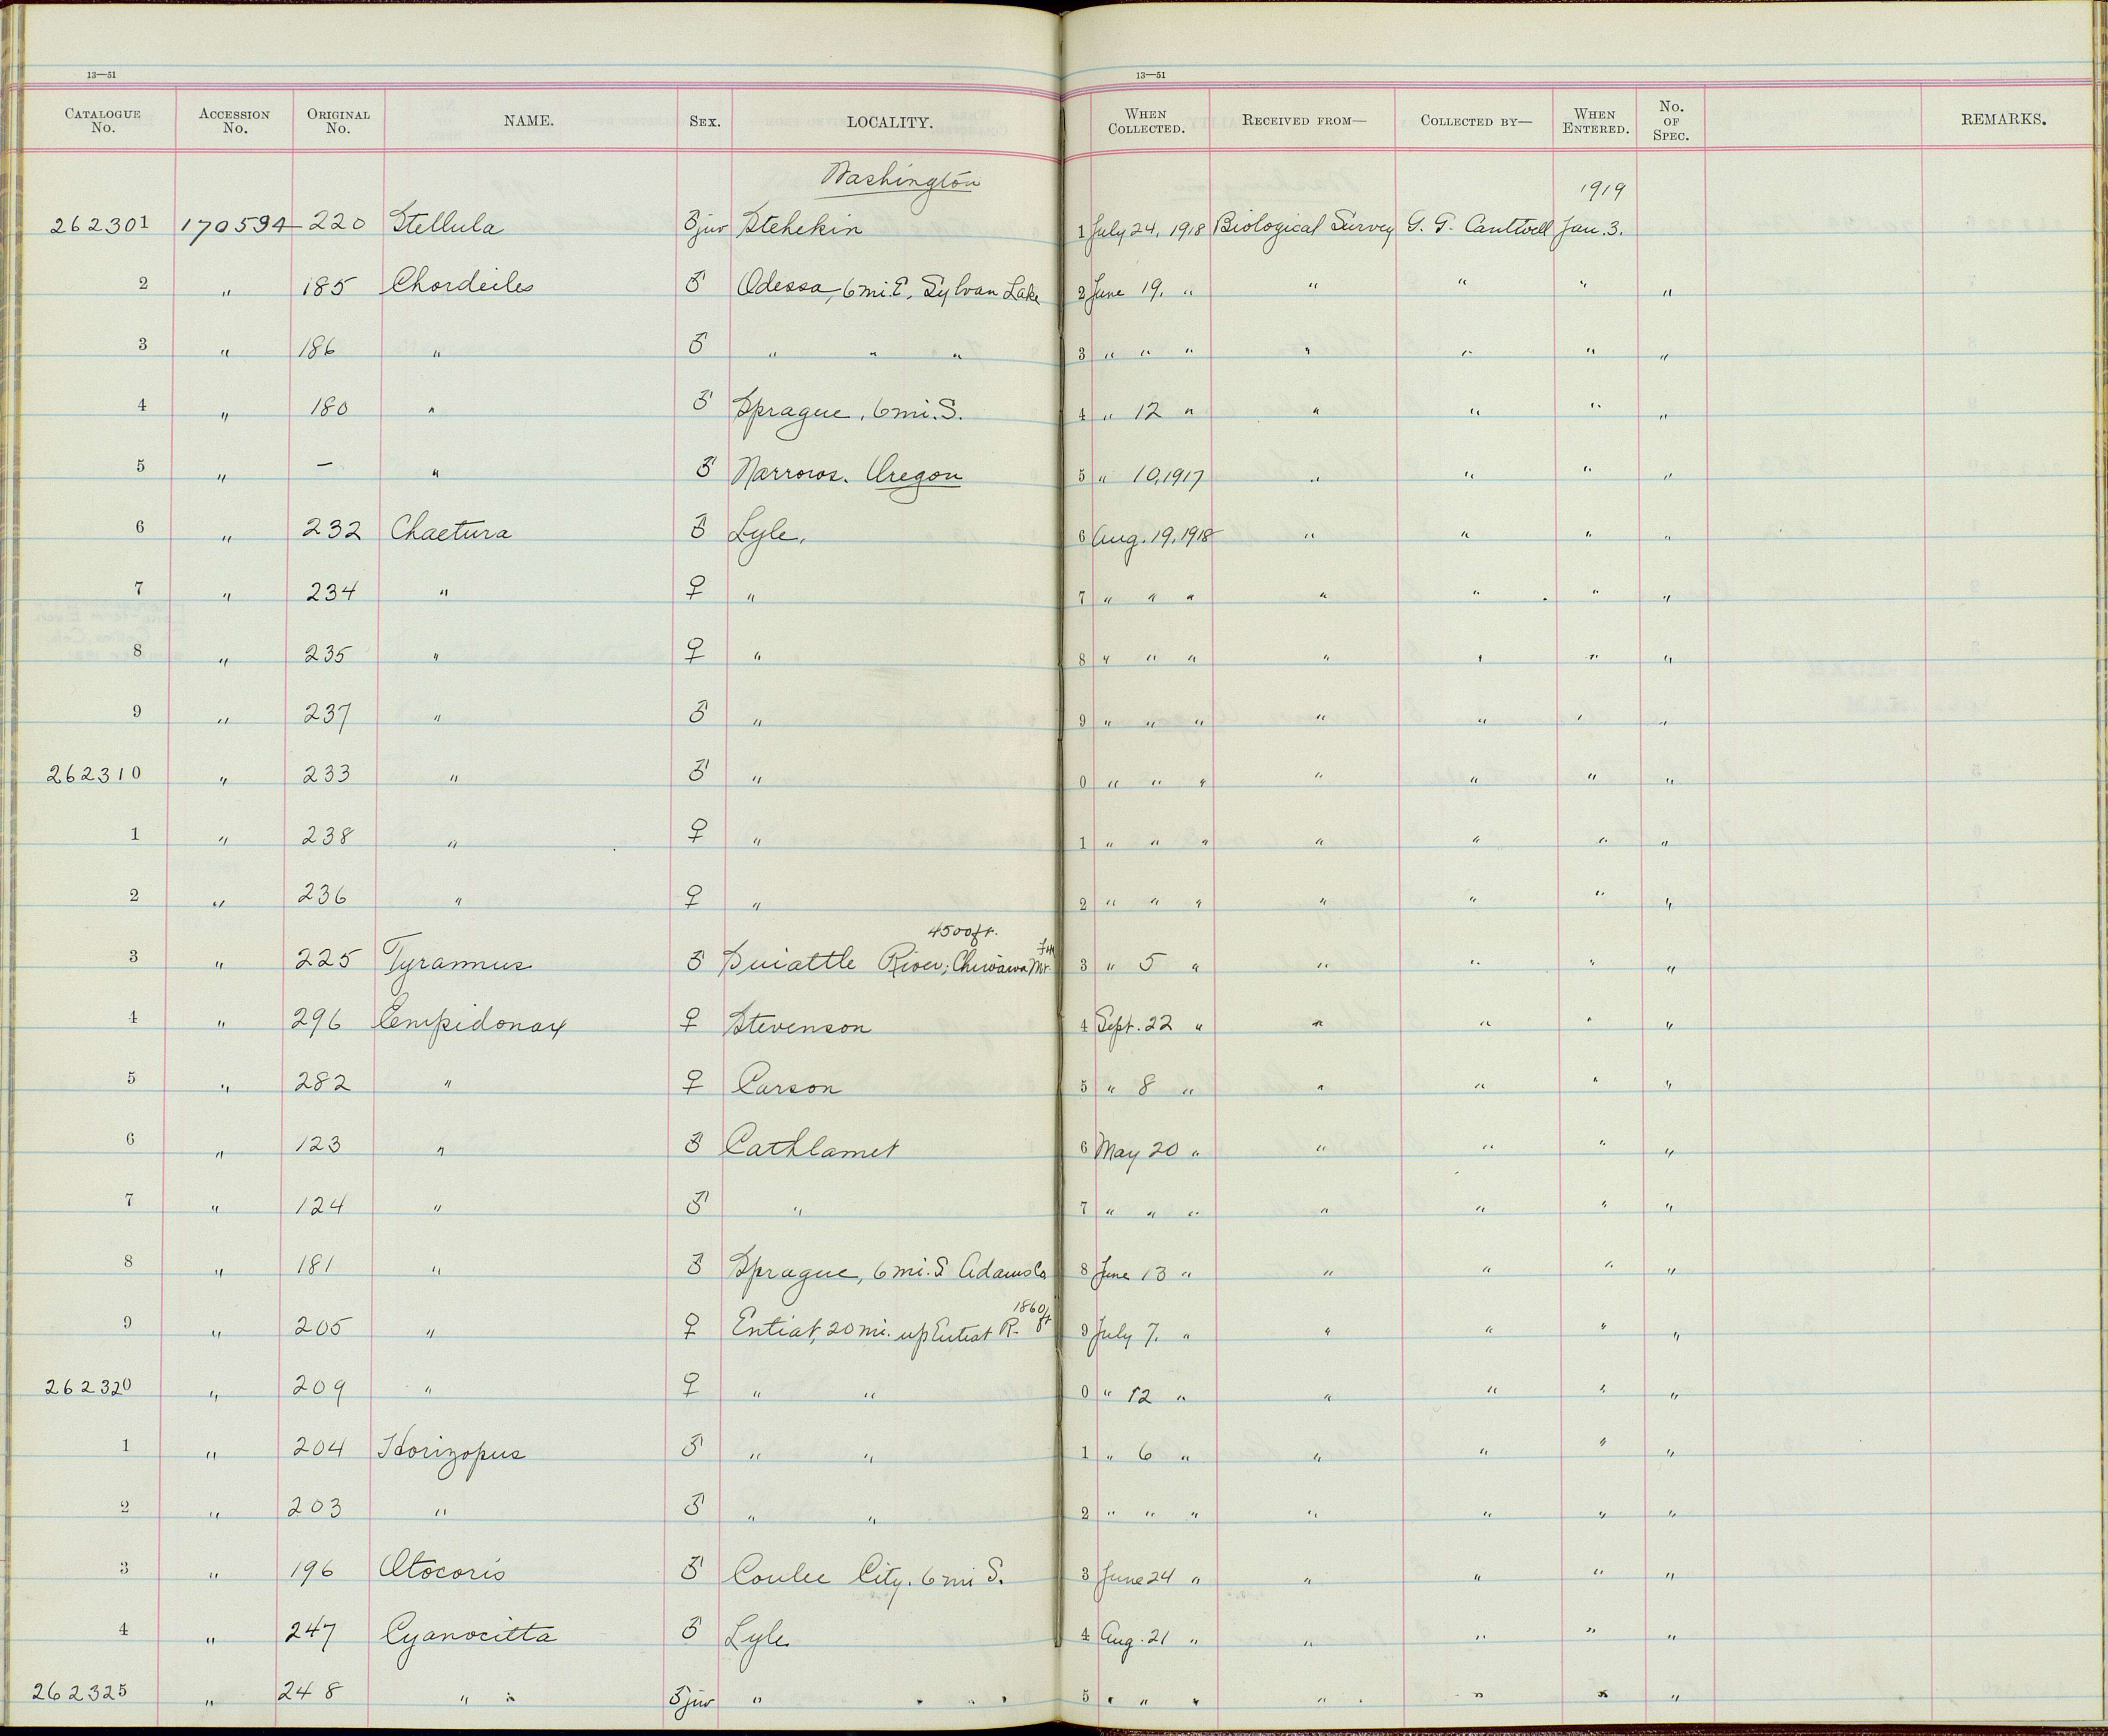 13—51 13—51
CATALOGUE No. ACCESSION No. ORIGINAL No. NAME. SEX. LOCALITY. WHEN COLLECTED. RECEIVED FROM— COLLECTED BY— WHEN ENTERED. No. OF SPEC. REMARKS.
Washington 1919
262301 170594 220 Stellula ♂ juv Stehekin 1 July 24, 1918 Biological Survey G. G. Cantwell Jan. 3.
2 " 185 Chordeiles ♂ Odessa, 6 mi. E. Sylvan Lake 2 June 19. " " " " "
3 " 186 " ♂ " " " 3 " " " " " " "
4 " 180 " ♂ Sprague, 6 mi. S. 4 " 12 " " " " "
5 " — " ♂ Narrows. Oregon 5 " 10, 1917 " " " "
6 " 232 Chaetura ♂ Lyle, 6 Aug. 19, 1918 " " " "
7 " 234 " ♀ " 7 " " " " " " "
8 " 235 " ♀ " 8 " " " " " " "
9 " 237 " ♂ " 9 " " " " " " "
262310 " 233 " ♂ " 0 " " " " " " "
1 " 238 " ♀ " 1 " " " " " " "
2 " 236 " ♀ " 2 " " " " " " "
4500 ft.
3 " 225 Tyrannus ♂ Suiattle River; Chiwawa Mt. 3 " 5 " " " " "
4 " 296 Empidonax ♀ Stevenson 4 Sept. 22 " " " " "
5 " 282 " ♀ Carson 5 " 8 " " " " "
6 " 123 " ♂ Cathlamet 6 May 20 " " " " "
7 " 124 " ♂ " 7 " " " " " " "
8 " 181 " ♂ Sprague, 6 mi. S Adams Co 8 June 13 " " " " "
1860 ft
9 " 205 " ♀ Entiat, 20 mi. up Entiat R. 9 July 7. " " " " "
262320 " 209 " ♀ " " 0 " 12 " " " " "
1 " 204 Horizopus ♂ " " 1 " 6 " " " " "
2 " 203 " ♂ " " 2 " " " " " " "
3 " 196 Otocoris ♂ Coulee City. 6 mi S. 3 June 24 " " " " "
4 " 247 Cyanocitta ♂ Lyle 4 Aug. 21 " " " " "
262325 " 248 " " ♂ juv " " " " 5 " " " " " " "